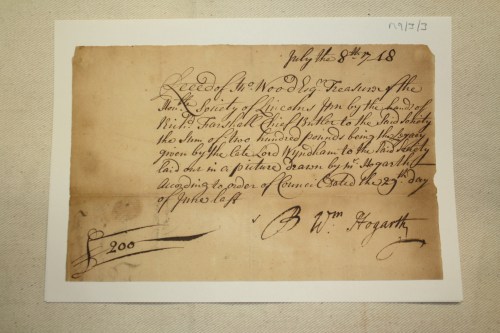 July the 8th 1748
Recd of Tho Wood Esqr Treasurer of the
Honble Society of Lincolns Inn by the hands of
Richd Farshall Chief Butler to the said Society
the Sum of two hundred pounds being the Legacy
given by the late Lord Wyndham to the said Society
laid out in a picture drawn by Mr Hogarth
According to order of Council Dated the 27th day
of June last
£200
Wm Hogarth